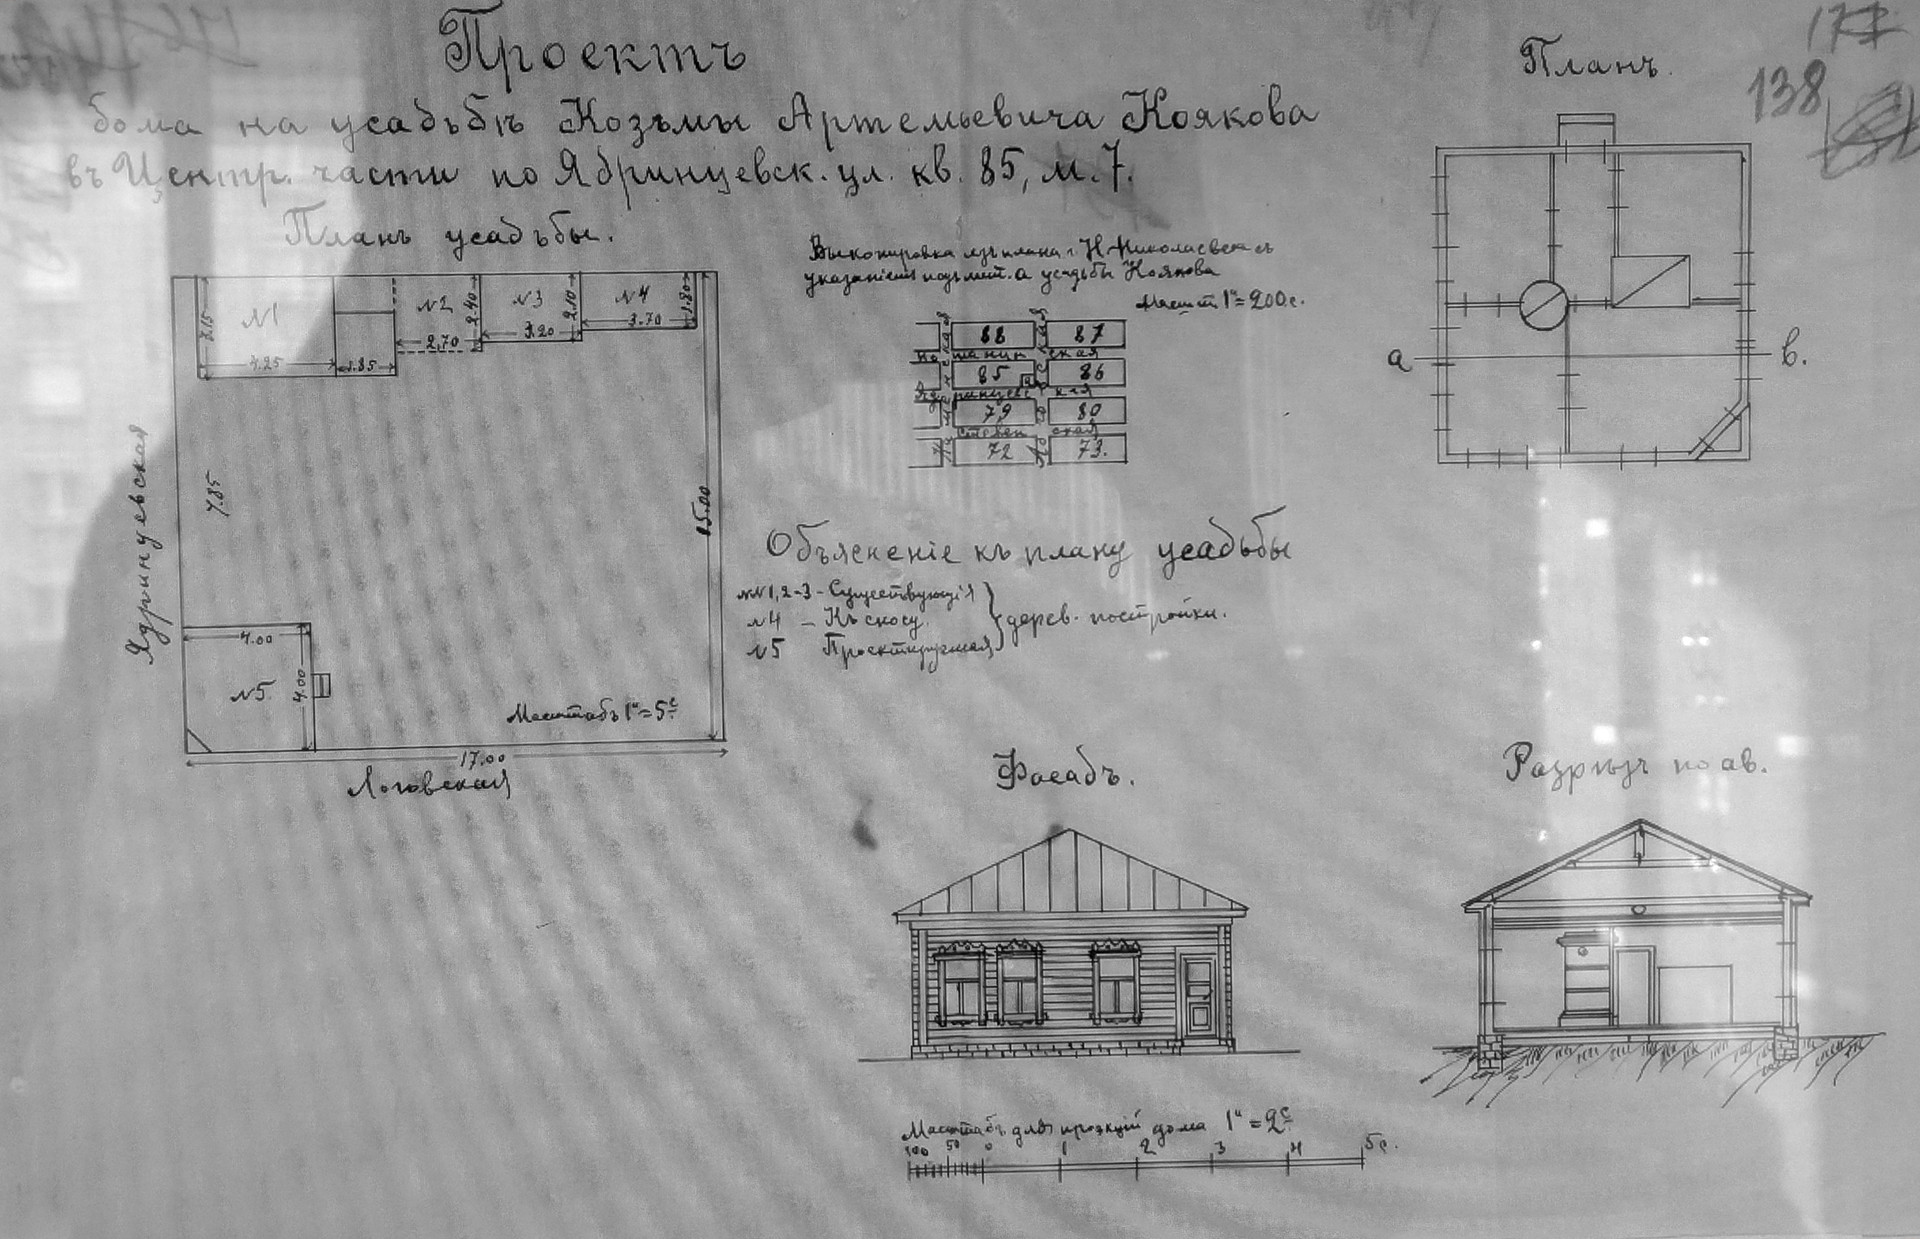 Проектъ
дома на усадьбѣ Козьмы Артемьевича Коякова
въ Центр. части по Ядринцевск. ул. кв. 85, м. 7.
Планъ усадьбы.
№1
3.15
4.25
1.85
№2
2.40
2,70
№3
2.10
3.20
№4
1.80
3.70
Ядринцевская
7.85
15.00
4.00
№5.
4.00
Масштабъ 1"=5с
17.00
Логовская
Выкопировка изъ плана г. Н.-Николаевска съ
указаніемъ подъ лит. а усадьбы Коякова
Масшт 1"=200с.
88 87
ская
85 86
Ядринцевская
79 80
ская
72 73.
Объясненіе къ плану усадьбы
№№1,2-3 - Существующія
№4 - Къ сносу.
№5 Проектируемая
дерев. постройки.
Планъ.
177
138
а
в.
Фасадъ.
Разрѣзъ по ав.
Масштабъ для проэкцій дома 1"=2с
100 50 0 1 2 3 4 5с.